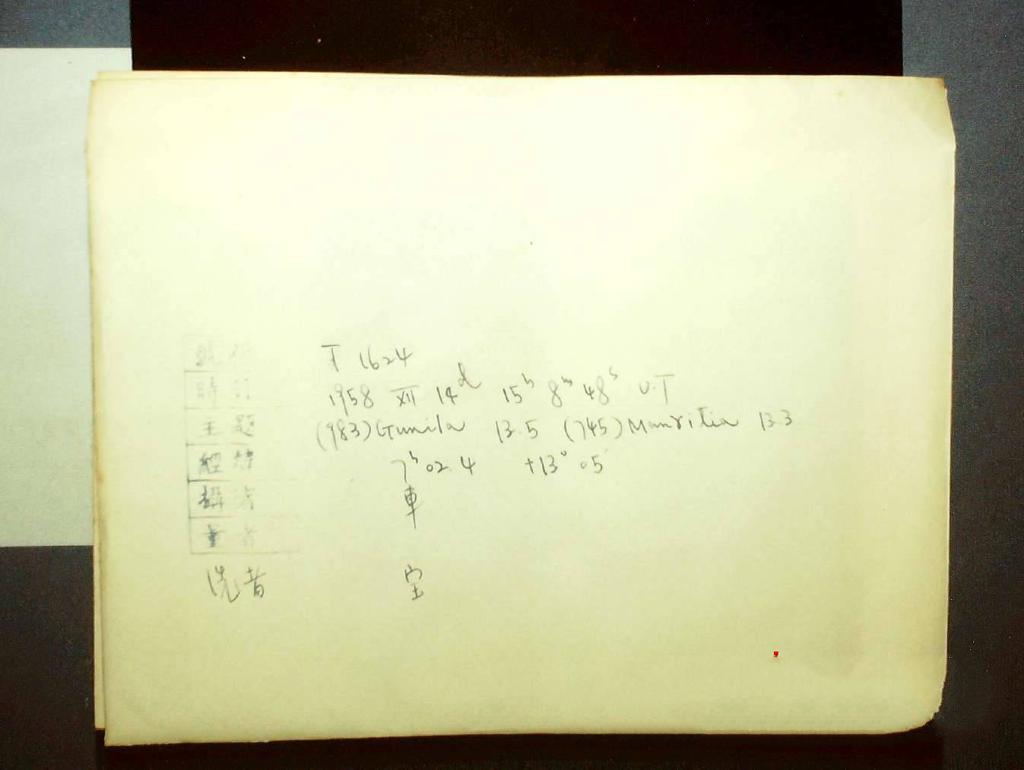 號
T 1624
時
1958 XII 14ᵈ 15ʰ 8ᵐ 48ˢ U.T
主題
(983) Gunila 13.5 (745) Mauritia 13.3
經緯
7ʰ 02.4 +13° 05'
攝者
車
量者
洗者
室